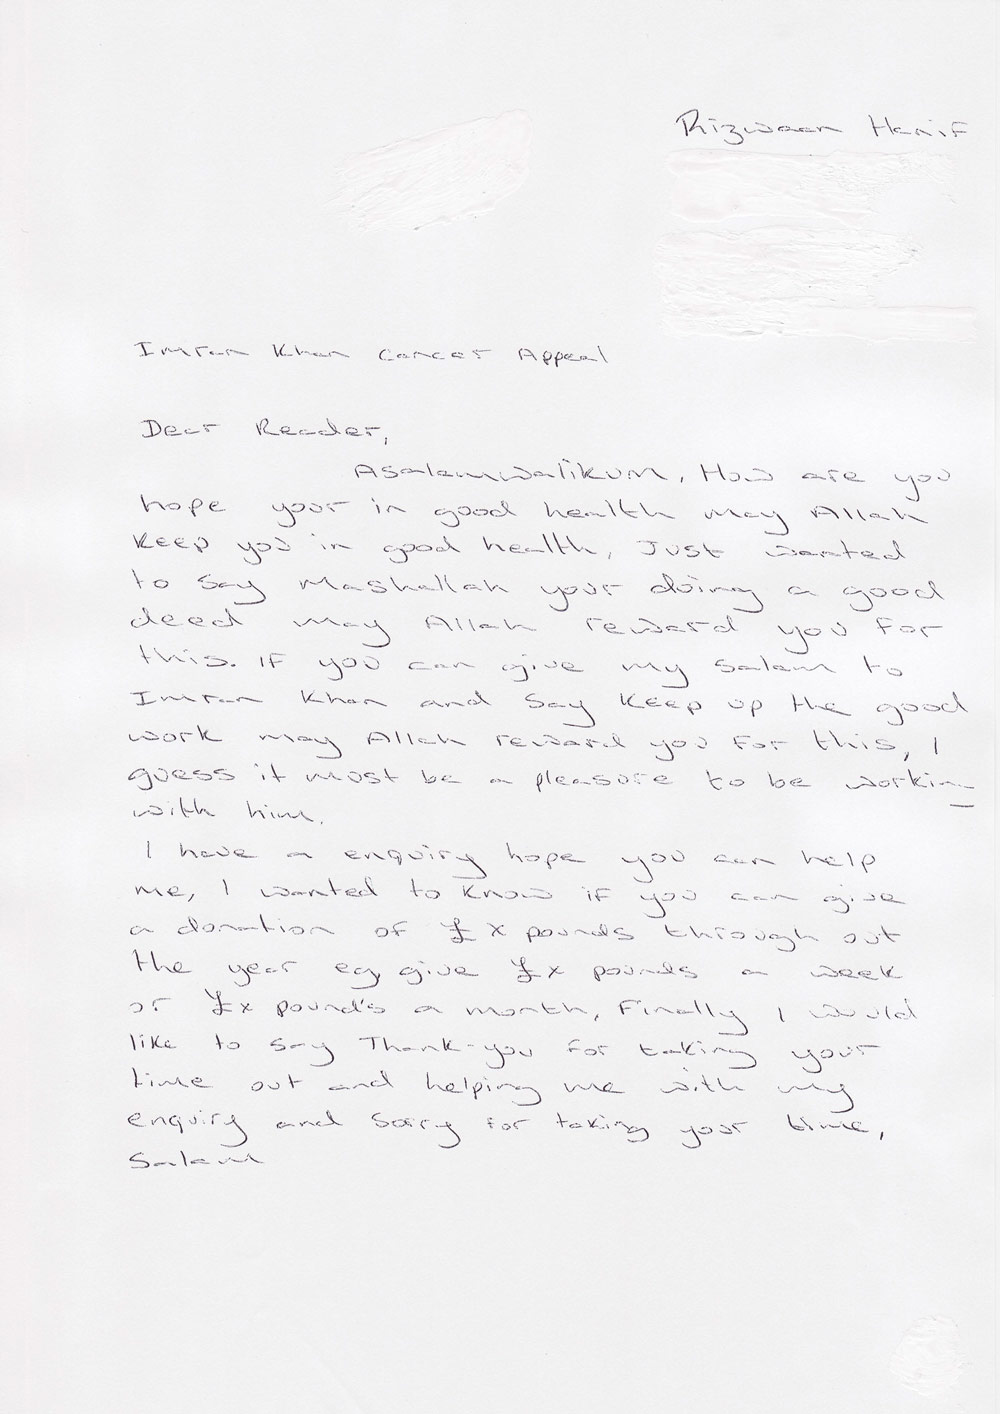 Rizwaan Hanif
Imran Khan Cancer Appeal
Dear Reader,
Asalamwalikum, How are you
hope your in good health may Allah
keep you in good health, Just wanted
to say Mashallah your doing a good
deed may Allah reward you for
this. If you can give my salam to
Imran Khan and say keep up the good
work may Allah reward you for this, I
guess it must be a pleasure to be working
with him.
I have a enquiry hope you can help
me, I wanted to know if you can give
a donation of £x pounds through out
the year eg give £x pounds a week
or £x pound's a month, Finally I would
like to say Thank-you for taking your
time out and helping me with my
enquiry and sorry for taking your time,
Salam